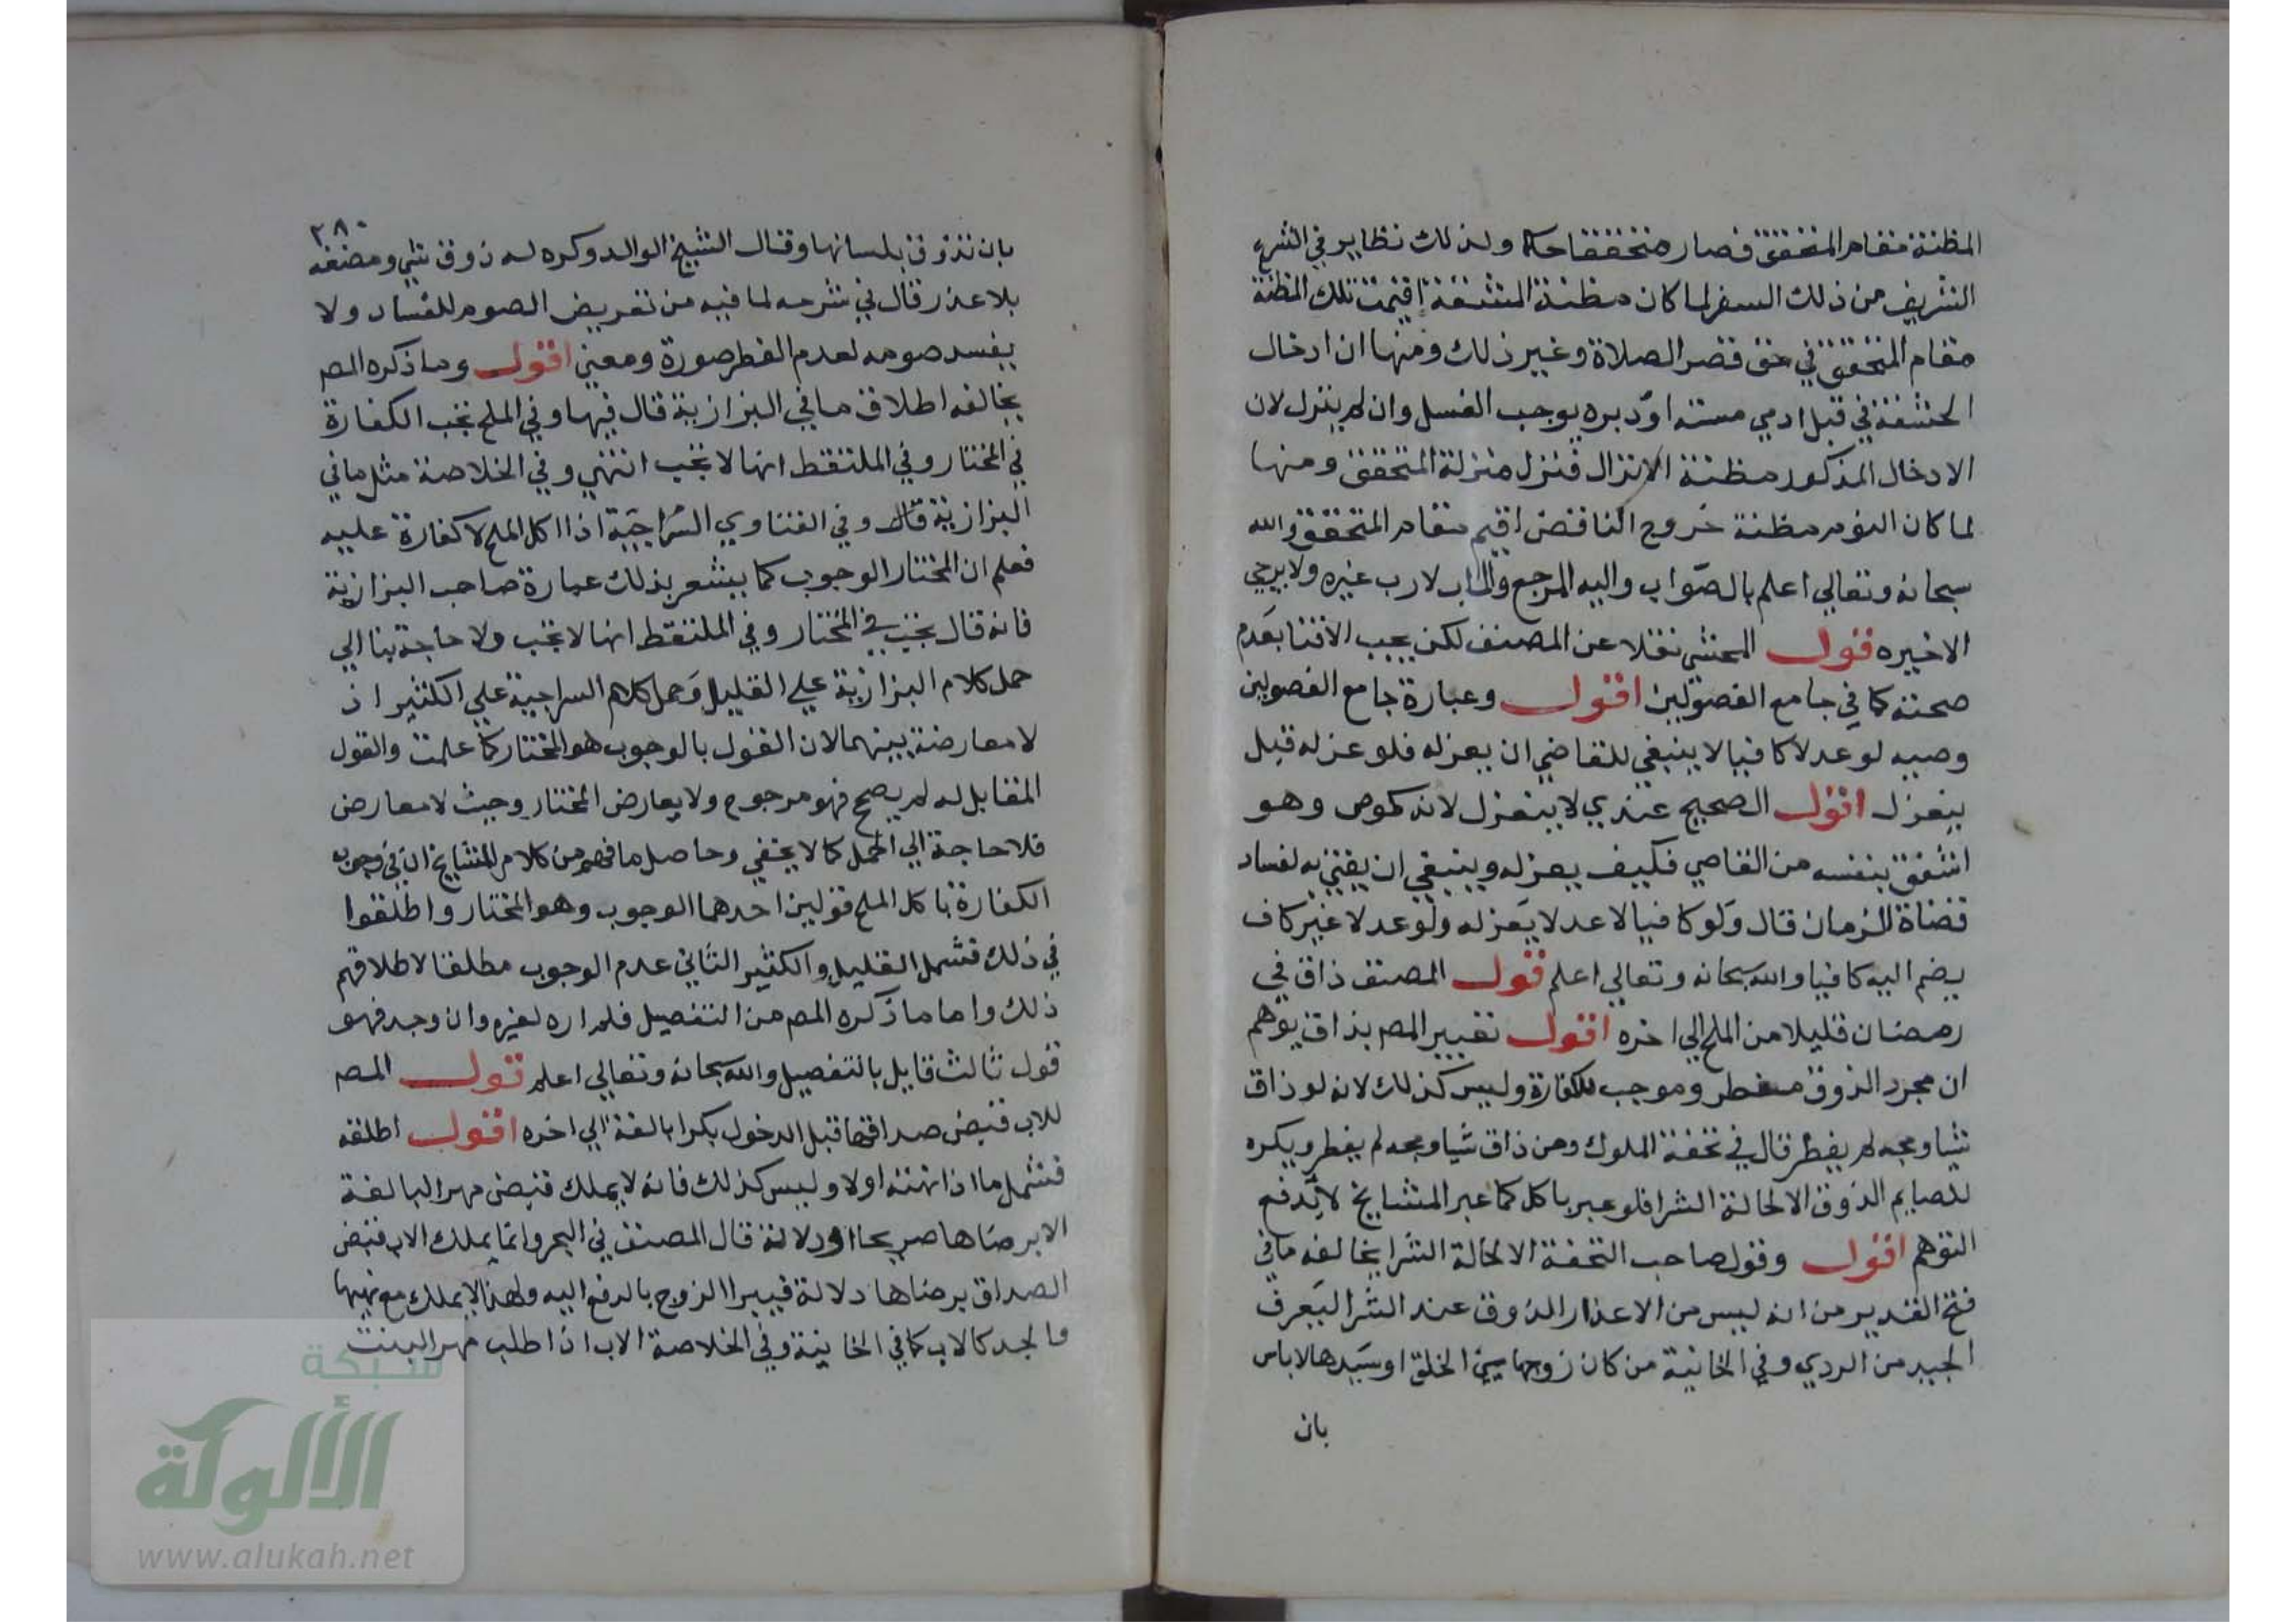 المظنة مقام المتحقق فصار متحققا حكما ولذلك نظاير في الشرع
الشريف من ذلك السفر لما كان مظنة المشقة اقيمت تلك المظنة
مقام المتحقق في حق قصر الصلاة وغير ذلك ومنها ان ادخال
الحشفة في قبل ادمي مشته او دبره يوجب الغسل وان لم ينزل لان
الادخال المذكور مظنة الانزال فنزل منزلة المتحقق ومنها
لما كان النوم مظنة خروج الناقض اقيم مقام المتحقق والله
سبحانه وتعالي اعلم بالصواب واليه المرجع والماب لا رب غيره ولا يرجي
الاخيره قول المحشي نقلا عن المصنف لكن يجب الافتا بعدم
صحته كما في جامع الفصولين اقول وعبارة جامع الفصولين
وصيه لو عدلا كافيا لا ينبغي للقاضي ان يعزله فلو عزله قيل
ينعزل اقول الصحيح عندي لا ينعزل لانه كموص وهو
اشفق بنفسه من القاضي فكيف يعزله وينبغي ان يفتي به لفساد
قضاة الزمان قال ولو كافيا لا عدلا يعزله ولو عدلا غير كاف
يضم اليه كافيا والله سبحانه وتعالي اعلم قول المصنف ذاق في
رمضان قليلا من الملح الي اخره اقول تعبير المص بذاق يوهم
ان مجرد الذوق مفطر وموجب للكفارة وليس كذلك لانه لو ذاق
شيا ومجه لم يفطر قال في تحفة الملوك ومن ذاق شيا ومجه لم يفطر ويكره
للصايم الذوق الا لحالة الشرا فلو عبر باكل كما عبر المشايخ لاندفع
التوهم اقول وقول صاحب التحفة الا لحالة الشرا يخالفه ما في
فتح القدير من انه ليس من الاعذار الذوق عند الشرا ليعرف
الجيد من الردي وفي الخانية من كان زوجها سيئ الخلق او سيدها لا باس
بان
٢٨٠
بان تذوق بلسانها وقال الشيخ الوالد وكره له ذوق شي ومضغه
بلا عذر قال في شرحه لما فيه من تعريض الصوم للفساد ولا
يفسد صومه لعدم الفطر صورة ومعني اقول وما ذكره المص
يخالفه اطلاق ما في البزازية قال فيها وفي الملح تجب الكفارة
في المختار وفي الملتقط انها لا تجب انتهي وفي الخلاصة مثل ما في
البزازية قال وفي الفتاوي السراجية اذا اكل الملح لا كفارة عليه
فعلم ان المختار الوجوب كما يشعر بذلك عبارة صاحب البزازية
فانه قال تجب في المختار وفي الملتقط انها لا تجب ولا حاجة بنا الي
حمل كلام البزازية علي القليل وحمل كلام السراجية علي الكثير اذ
لا معارضة بينهما لان القول بالوجوب هو المختار كما علمت والقول
المقابل له لم يصح فهو مرجوح ولا يعارض المختار وحيث لا معارض
فلا حاجة الي الحمل كما لا يخفي وحاصل ما فهم من كلام المشايخ ان في وجوب
الكفارة باكل الملح قولين احدهما الوجوب وهو المختار واطلقوا
في ذلك فشمل القليل والكثير الثاني عدم الوجوب مطلقا لاطلاقهم
ذلك واما ما ذكره المص من التفصيل فلم اره لغيره وان وجد فهو
قول ثالث قايل بالتفصيل والله سبحانه وتعالي اعلم قول المص
للاب قبض صداقها قبل الدخول بكرا بالغة الي اخره اقول اطلقه
فشمل ما اذا نهته اولا وليس كذلك فانه لا يملك قبض مهر البالغة
الا برضاها صريحا او دلالة قال المصنف في البحر وانما يملك الاب قبض
الصداق برضاها دلالة فيبرا الزوج بالدفع اليه ولهذا لا يملك مع نهيها
والجد كالاب كما في الخانية وفي الخلاصة الاب اذا طلب مهر البنت
شبكة
الألوكة
www.alukah.net